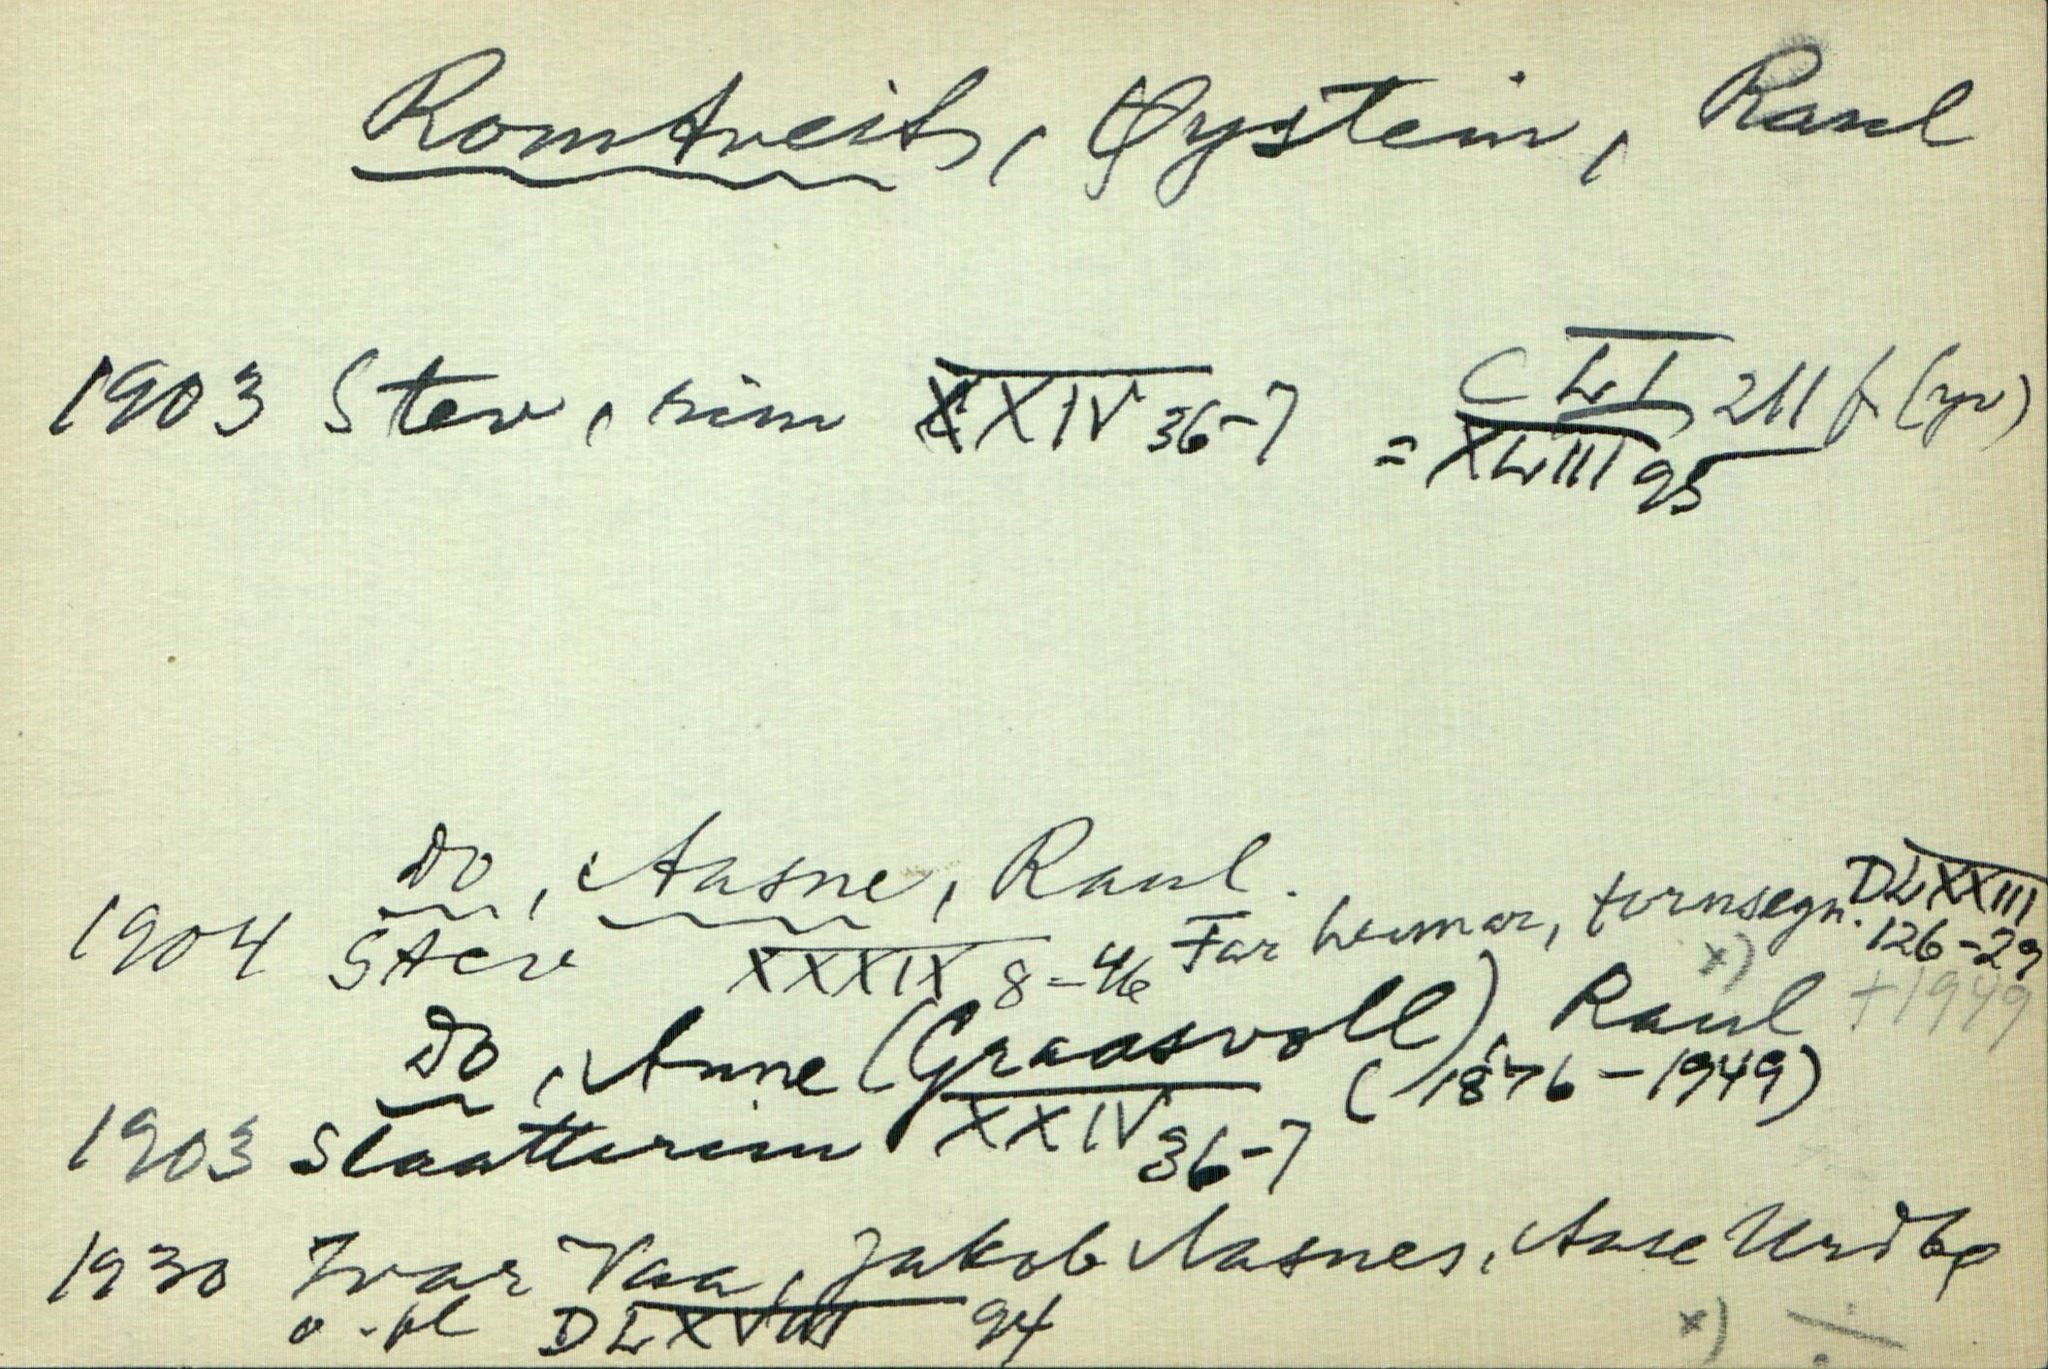 Romtveit, Øystein, Raul
1903 Stev, rim XXIV 36-7 CLI, 211 f (yv)
= XLIII 95
Do, Aasne, Raul.
1904 Stev XXXIX 8-46 Far heimar, turnsegn. DLXXIII 126-29
x)
Do, Anne (Graasvoll), Raul +1949
(1876-1949)
1903 Slaatterim XXIV 36-7
1930 Ivar Vaa, Jakob Aasnes, Aase Urdbø
o. fl DLXVIII 94
x) ÷